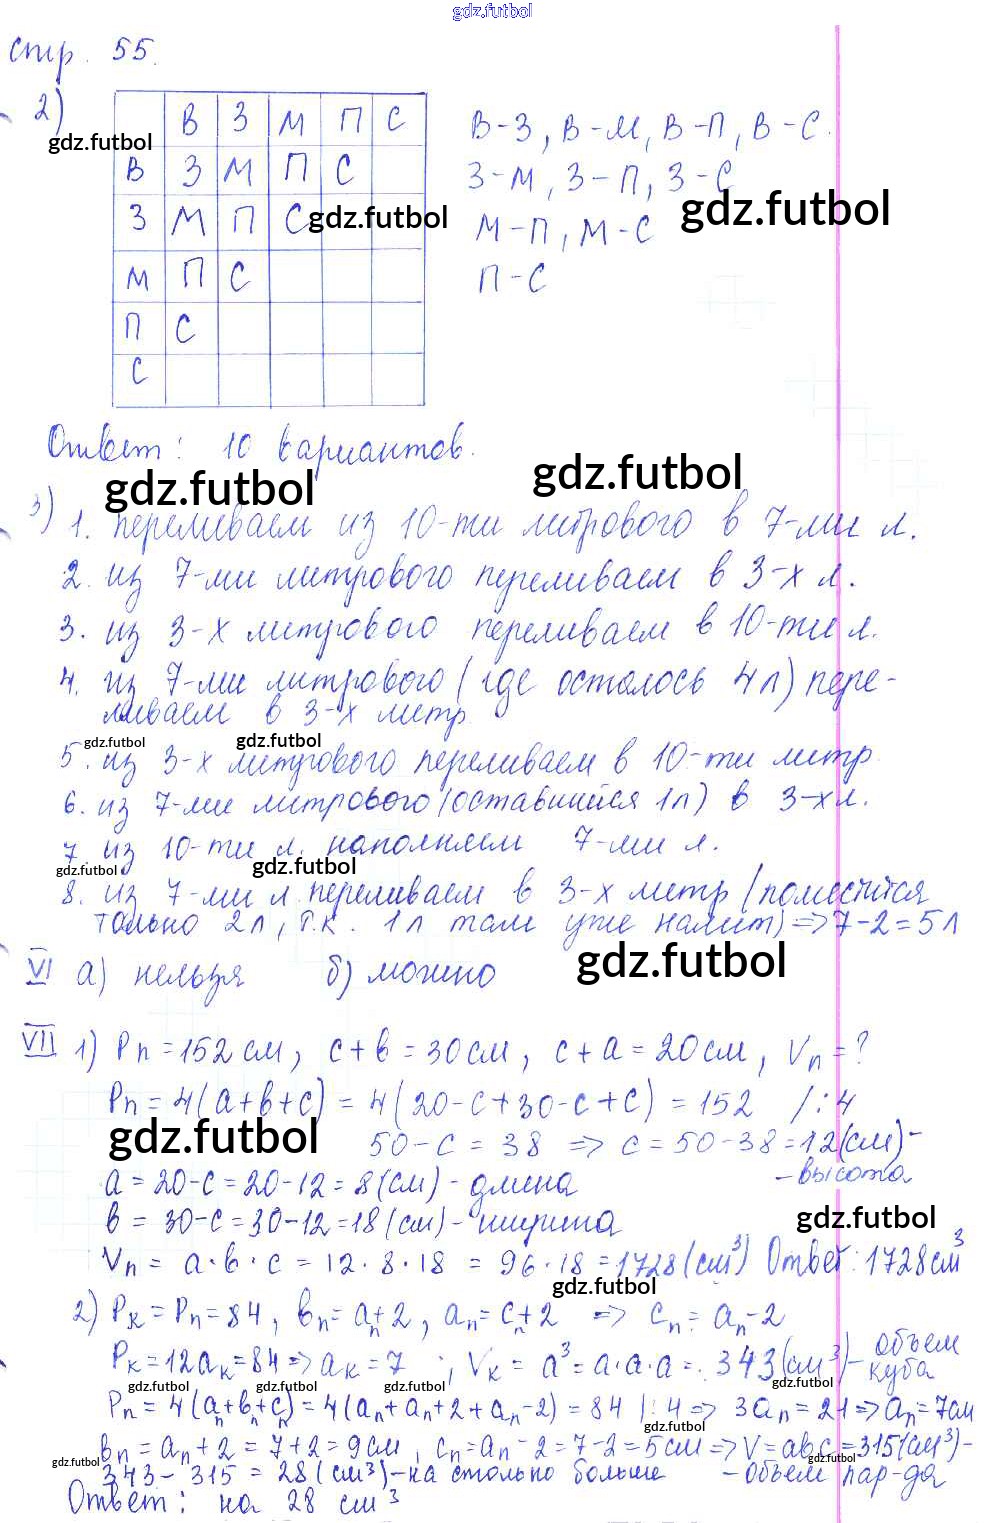 gdz.futbol
стр. 55.
2)
gdz.futbol
В З М П С
В З М П С
З М П С
М П С
П С
С
gdz.futbol
В-З, В-М, В-П, В-С.
З-М, З-П, З-С
gdz.futbol
М-П, М-С
П-С
Ответ: 10 вариантов.
gdz.futbol
gdz.futbol
3) 1. переливаем из 10-ти литрового в 7-ми л.
2. из 7-ми литрового переливаем в 3-х л.
3. из 3-х литрового переливаем в 10-ти л.
4. из 7-ми литрового (где осталось 4л) пере-
ливаем в 3-х литр
gdz.futbol
gdz.futbol
5. из 3-х литрового переливаем в 10-ти литр.
6. из 7-ми литрового (оставшийся 1л) в 3-х л.
7. из 10-ти л. наполняем 7-ми л.
gdz.futbol
gdz.futbol
8. из 7-ми л переливаем в 3-х литр (поместится
только 2л, т.к. 1л там уже налит) => 7-2=5л
gdz.futbol
VI а) нельзя б) можно
VII 1) Pп = 152 см, c+b = 30 см, c+a = 20 см, Vп = ?
Pп = 4(a+b+c) = 4(20-c+30-c+c) = 152 /:4
gdz.futbol
50-c = 38 => c = 50-38 = 12(см)-
- высота
a = 20-c = 20-12 = 8(см) - длина
b = 30-c = 30-12 = 18(см) - ширина
gdz.futbol
Vп = a·b·c = 12·8·18 = 96·18 = 1728(см³) Ответ: 1728см³
gdz.futbol
2) Pк = Pп = 84, bп = aп+2, aп = cп+2 => cп = aп-2
Pк = 12aк = 84 => aк = 7; Vк = a³ = a·a·a = 343(см³) - объем
куба
gdz.futbol
gdz.futbol
gdz.futbol
gdz.futbol
Pп = 4(aп+bп+cп) = 4(aп+aп+2+aп-2) = 84 /:4 => 3aп = 21 => aп = 7см
gdz.futbol
bп = aп+2 = 7+2 = 9см, cп = aп-2 = 7-2 = 5см => V = abc = 315(см³)-
gdz.futbol
gdz.futbol
343-315 = 28(см³) - на столько больше - объем пар-да
Ответ: на 28 см³